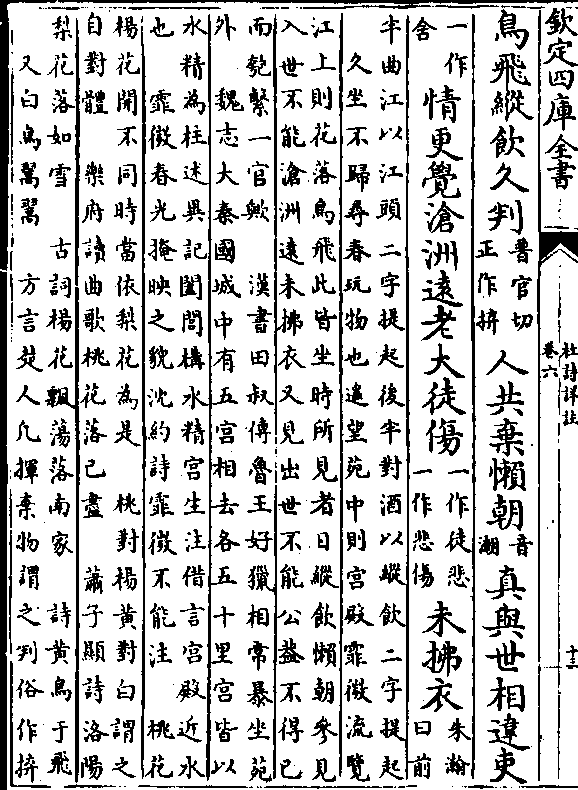 欽定四庫全書
杜詩詳註
卷六
十三
鳥飛縱飲久判普官切正作拚人共棄懶朝音潮真與世相違吏
一作舍情更覺滄洲遠老大徒傷一作徒悲一作悲傷未拂衣朱瀚曰前
半曲江以江頭二字提起後半對酒以縱飲二字提起
久坐不歸尋春玩物也遥望苑中則宮殿霏微流覽
江上則花落鳥飛此皆坐時所見者日縱飲懶朝參見
入世不能滄洲遠未拂衣又見出世不能公盖不得已
而匏繫一官歟 漢書田叔傳魯王好獵相常暴坐苑
外 魏志大秦國城中有五宮相去各五十里宮皆以
水精為柱述異記闔閭構水精宮生注借言宮殿近水
也 霏微春光掩映之貌沈約詩霏微不能注 桃花
楊花開不同時當依梨花為是 桃對楊黄對白謂之
自對體 樂府讀曲歌桃花落已盡 蕭子顯詩洛陽
梨花落如雪 古詞楊花飄蕩落南家 詩黄鳥于飛
又白鳥翯翯 方言楚人凡揮棄物謂之判俗作拚